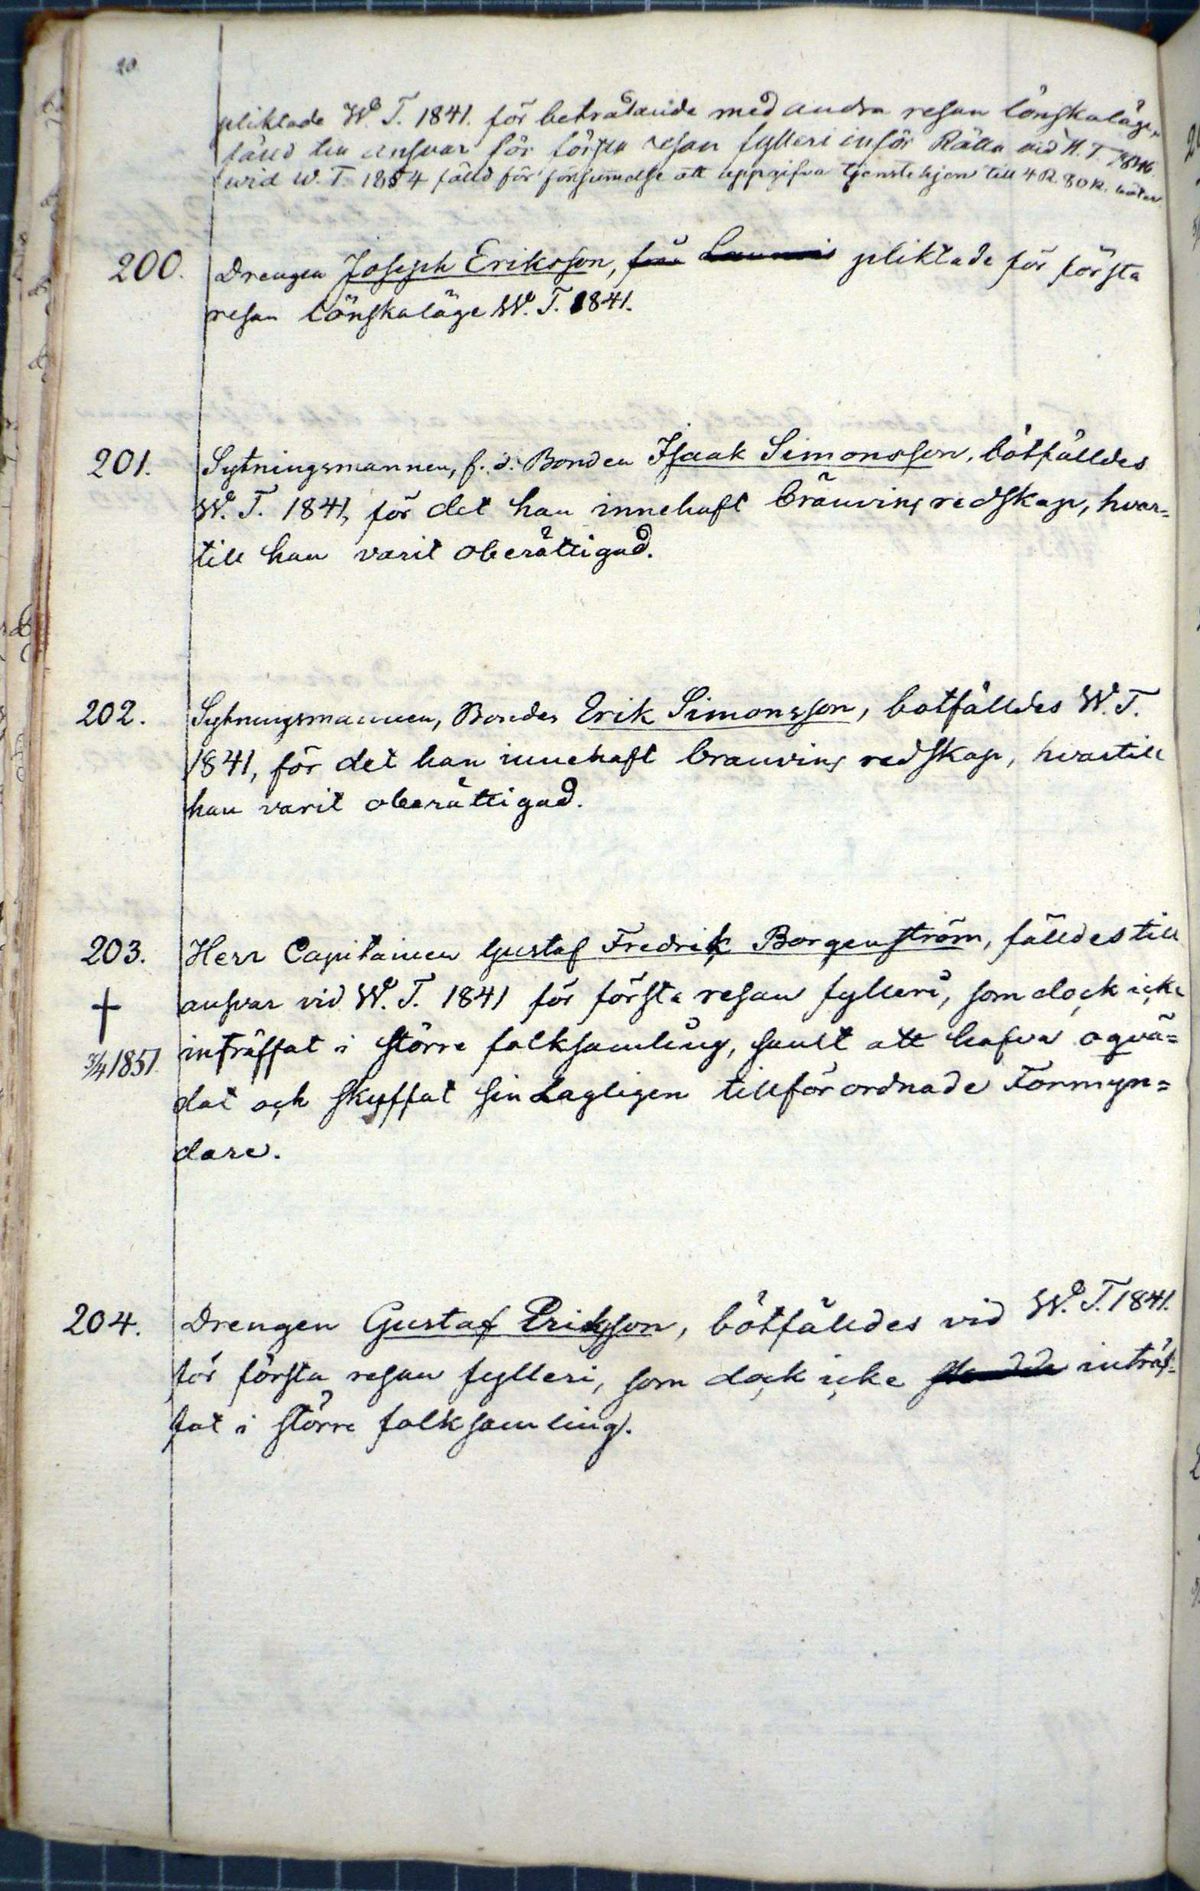 20
pliktade W. T. 1841. för beträdande med andra resan lönskaläge,
fälld till ansvar för första resan fylleri inför Rätta vid H. T. 1846.
wid W. T. 1854 fälld för försummelse att uppgifva tjenstehjon till 4 R. 80 K. böter.
200. Drengen Joseph Eriksson, från Launois pliktade för första
resan lönskaläge W. T. 1841.
201. Sytningsmannen, f. d. Bonden Isaak Simonsson, bötfälldes
W. T. 1841, för det han innehaft bränvins redskap, hvar=
till han varit oberättigad.
202. Sytningsmannen, Bonden Erik Simonsson, botfälldes W. T.
1841, för det han innehaft branvins redskap, hvartill
han varit oberättigad.
203. Herr Capitainen Gustaf Fredrik Borgenström, fälldes till
† ansvar vid W. T. 1841 för första resan fylleri, som dock icke
1851. inträffat i större folksamling, samt att hafva oqvä=
dat och skuffat sin Lagligen tillförordnade Förmyn=
dare.
204. Drengen Gustaf Eriksson, bötfälldes vid W. T. 1841.
för första resan fylleri, som dock icke inträf=
fat i större folksamling.